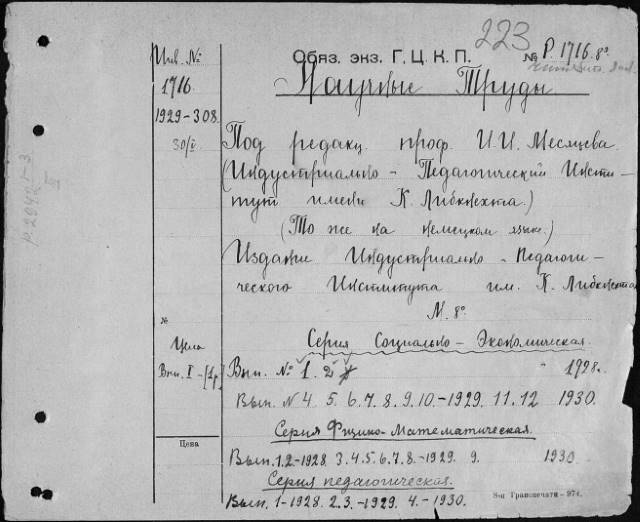 223
Обяз. экз. Г.Ц.К.П. № Р. 1716. 8°
Инв. №
1716
1929-308
30/I
Научные Труды
Под редакц. проф. И.И. Месяцева.
(Индустриально - Педагогический Инсти-
тут имени К. Либкнехта.)
(То же на немецком языке.)
Издание Индустриально - Педагоги-
ческого Института им. К. Либкнехта
М. 8°
№
Цена
Вып. I - [1р.]
Серия Социально - Экономическая.
Вып. № 1. 2 1928.
Вып. № 4. 5. 6. 7. 8. 9. 10. - 1929. 11. 12 1930.
Серия Физико-Математическая.
Цена
Вып. 1. 2 - 1928. 3. 4. 5. 6. 7. 8. - 1929. 9. 1930
Серия педагогическая.
Вып. 1 - 1928. 2. 3. - 1929. 4. - 1930.
8-я Транспечати - 974.